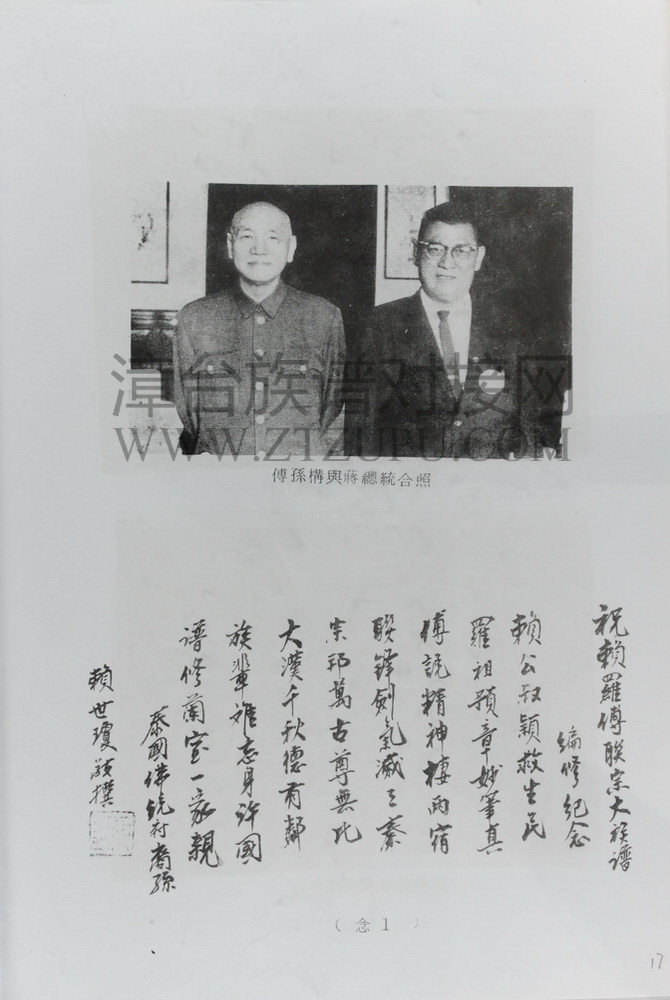 漳台族谱对接网
WWW.ZTZUPU.COM
傅孫構與蔣總統合照
祝賴羅傅聯宗大族譜
編修紀念
賴公叔穎救生民
羅祖預章妙筆真
傅說精神棲兩宿
聯鋒劍氣滅三秦
宗邦萬古尊無比
大漢千秋德有馨
族輩難忘身許國
譜修蘭室一家親
泰國佛統府裔孫
賴世瓊敬撰
(念1)
17